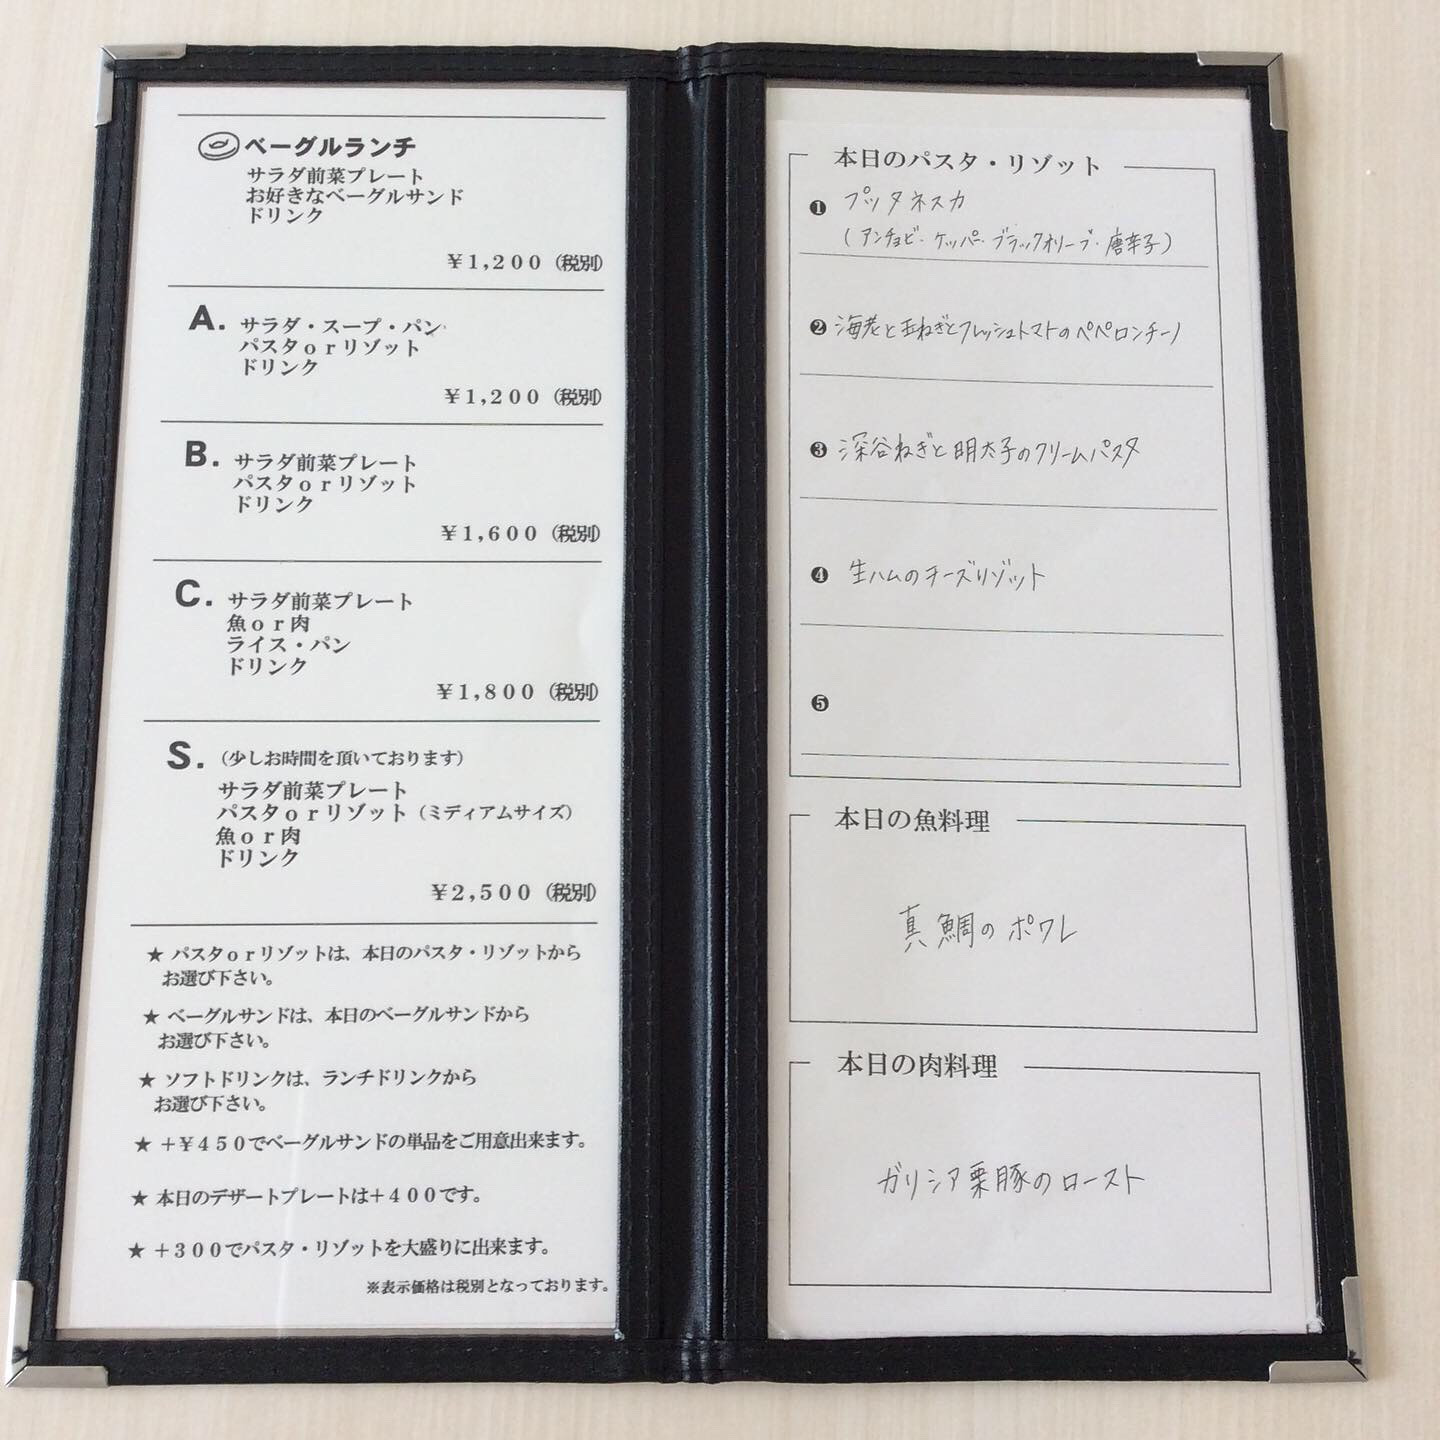 ベーグルランチ
サラダ前菜プレート
お好きなベーグルサンド
ドリンク
￥1,200（税別）
A. サラダ・スープ・パン
パスタorリゾット
ドリンク
￥1,200（税別）
B. サラダ前菜プレート
パスタorリゾット
ドリンク
￥1,600（税別）
C. サラダ前菜プレート
魚or肉
ライス・パン
ドリンク
￥1,800（税別）
S.（少しお時間を頂いております）
サラダ前菜プレート
パスタorリゾット（ミディアムサイズ）
魚or肉
ドリンク
￥2,500（税別）
★ パスタorリゾットは、本日のパスタ・リゾットから
お選び下さい。
★ ベーグルサンドは、本日のベーグルサンドから
お選び下さい。
★ ソフトドリンクは、ランチドリンクから
お選び下さい。
★ +￥450でベーグルサンドの単品をご用意出来ます。
★ 本日のデザートプレートは+400です。
★ +300でパスタ・リゾットを大盛りに出来ます。
※表示価格は税別となっております。
本日のパスタ・リゾット
❶ プッタネスカ
(アンチョビ・ケッパー・ブラックオリーブ・唐辛子)
❷ 海老と玉ねぎとフレッシュトマトのペペロンチーノ
❸ 深谷ねぎと明太子のクリームパスタ
❹ 生ハムのチーズリゾット
❺
本日の魚料理
真鯛のポワレ
本日の肉料理
ガリシア栗豚のロースト